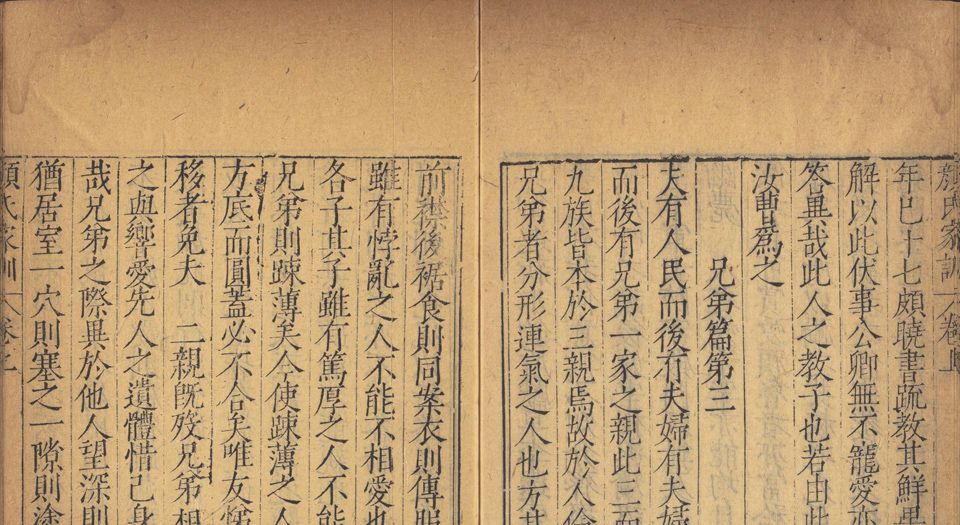 顔氏家訓 卷上
年已十七頗曉書疏教其鮮卑
解以此伏事公卿無不寵愛亦
答異哉此人之教子也若由此
汝曹為之
兄弟篇第三
夫有人民而後有夫婦有夫婦
而後有兄弟一家之親此三而
九族皆本於三親焉故於人倫
兄弟者分形連氣之人也方其
前襟後裾食則同案衣則傳服
雖有悖亂之人不能不相愛也
各子其子雖有篤厚之人不能
兄弟則踈薄矣今使踈薄之人
方底而圓蓋必不合矣唯友悌
移者免夫 二親既歿兄弟相
之與響愛先人之遺體惜己身
哉兄弟之際異於他人望深則
猶居室一穴則塞之一隙則塗
顔氏家訓 卷上